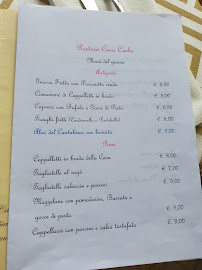 Ristoro Casa Carla
Menù del giorno
Antipasti
Gnocco Fritto con Prosciutto crudo € 8,00
Consommé di Cappelletti in brodo € 5,00
Caprese con Bufala e Pesto € 6,00
Funghi fritti € 6,00
Alici del Cantabrico con burrata € 7,00
Primi
Cappelletti in brodo della Casa € 8,00
Tagliatelle al ragù € 7,00
Tagliatelle salsiccia e porcini € 8,00
Mezzelune con pomodorino, Burrata e
gocce di pesto € 8,00
Cappellacci con porcini e salsa tartufata € 9,00